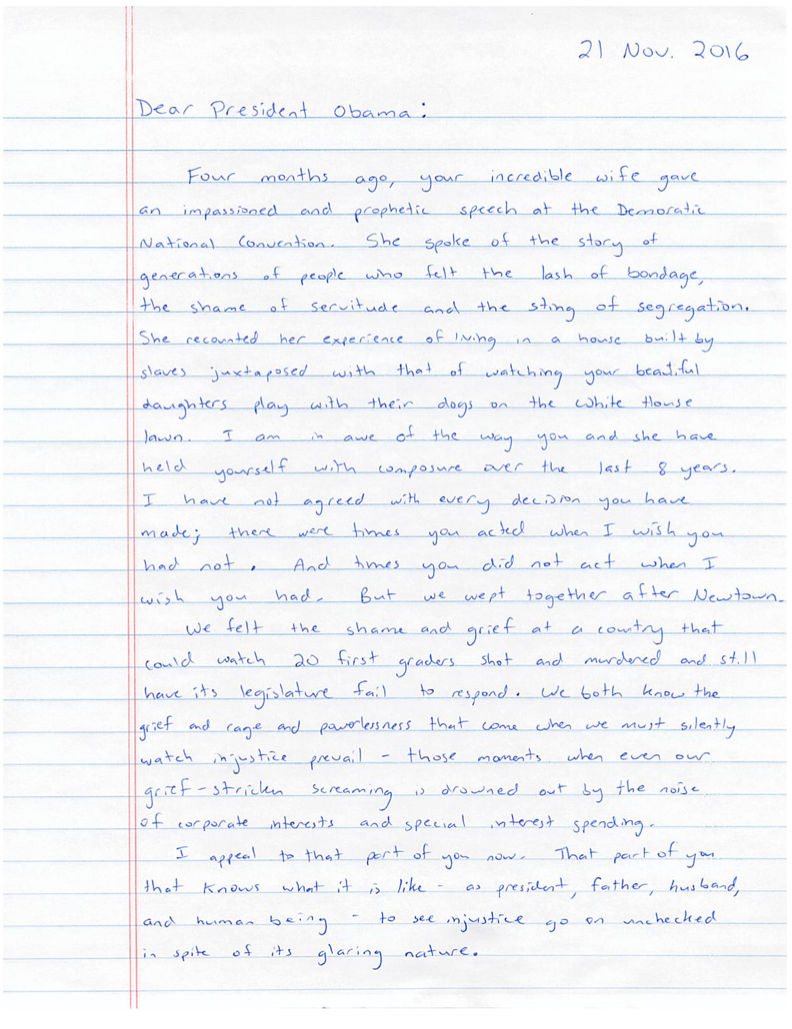 21 Nov. 2016
Dear President Obama:
Four months ago, your incredible wife gave
an impassioned and prophetic speech at the Democratic
National Convention. She spoke of the story of
generations of people who felt the lash of bondage,
the shame of servitude and the sting of segregation.
She recounted her experience of living in a house built by
slaves juxtaposed with that of watching your beautiful
daughters play with their dogs on the White House
lawn. I am in awe of the way you and she have
held yourself with composure over the last 8 years.
I have not agreed with every decision you have
made; there were times you acted when I wish you
had not. And times you did not act when I
wish you had. But we wept together after Newtown.
We felt the shame and grief at a country that
could watch 20 first graders shot and murdered and still
have its legislature fail to respond. We both know the
grief and rage and powerlessness that come when we must silently
watch injustice prevail - those moments when even our
grief-stricken screaming is drowned out by the noise
of corporate interests and special interest spending.
I appeal to that part of you now. That part of you
that knows what it is like - as president, father, husband,
and human being - to see injustice go on unchecked
in spite of its glaring nature.